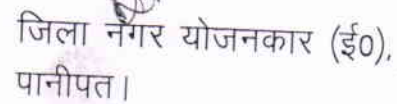 जिला नगर योजनकार (ई0),
पानीपत।